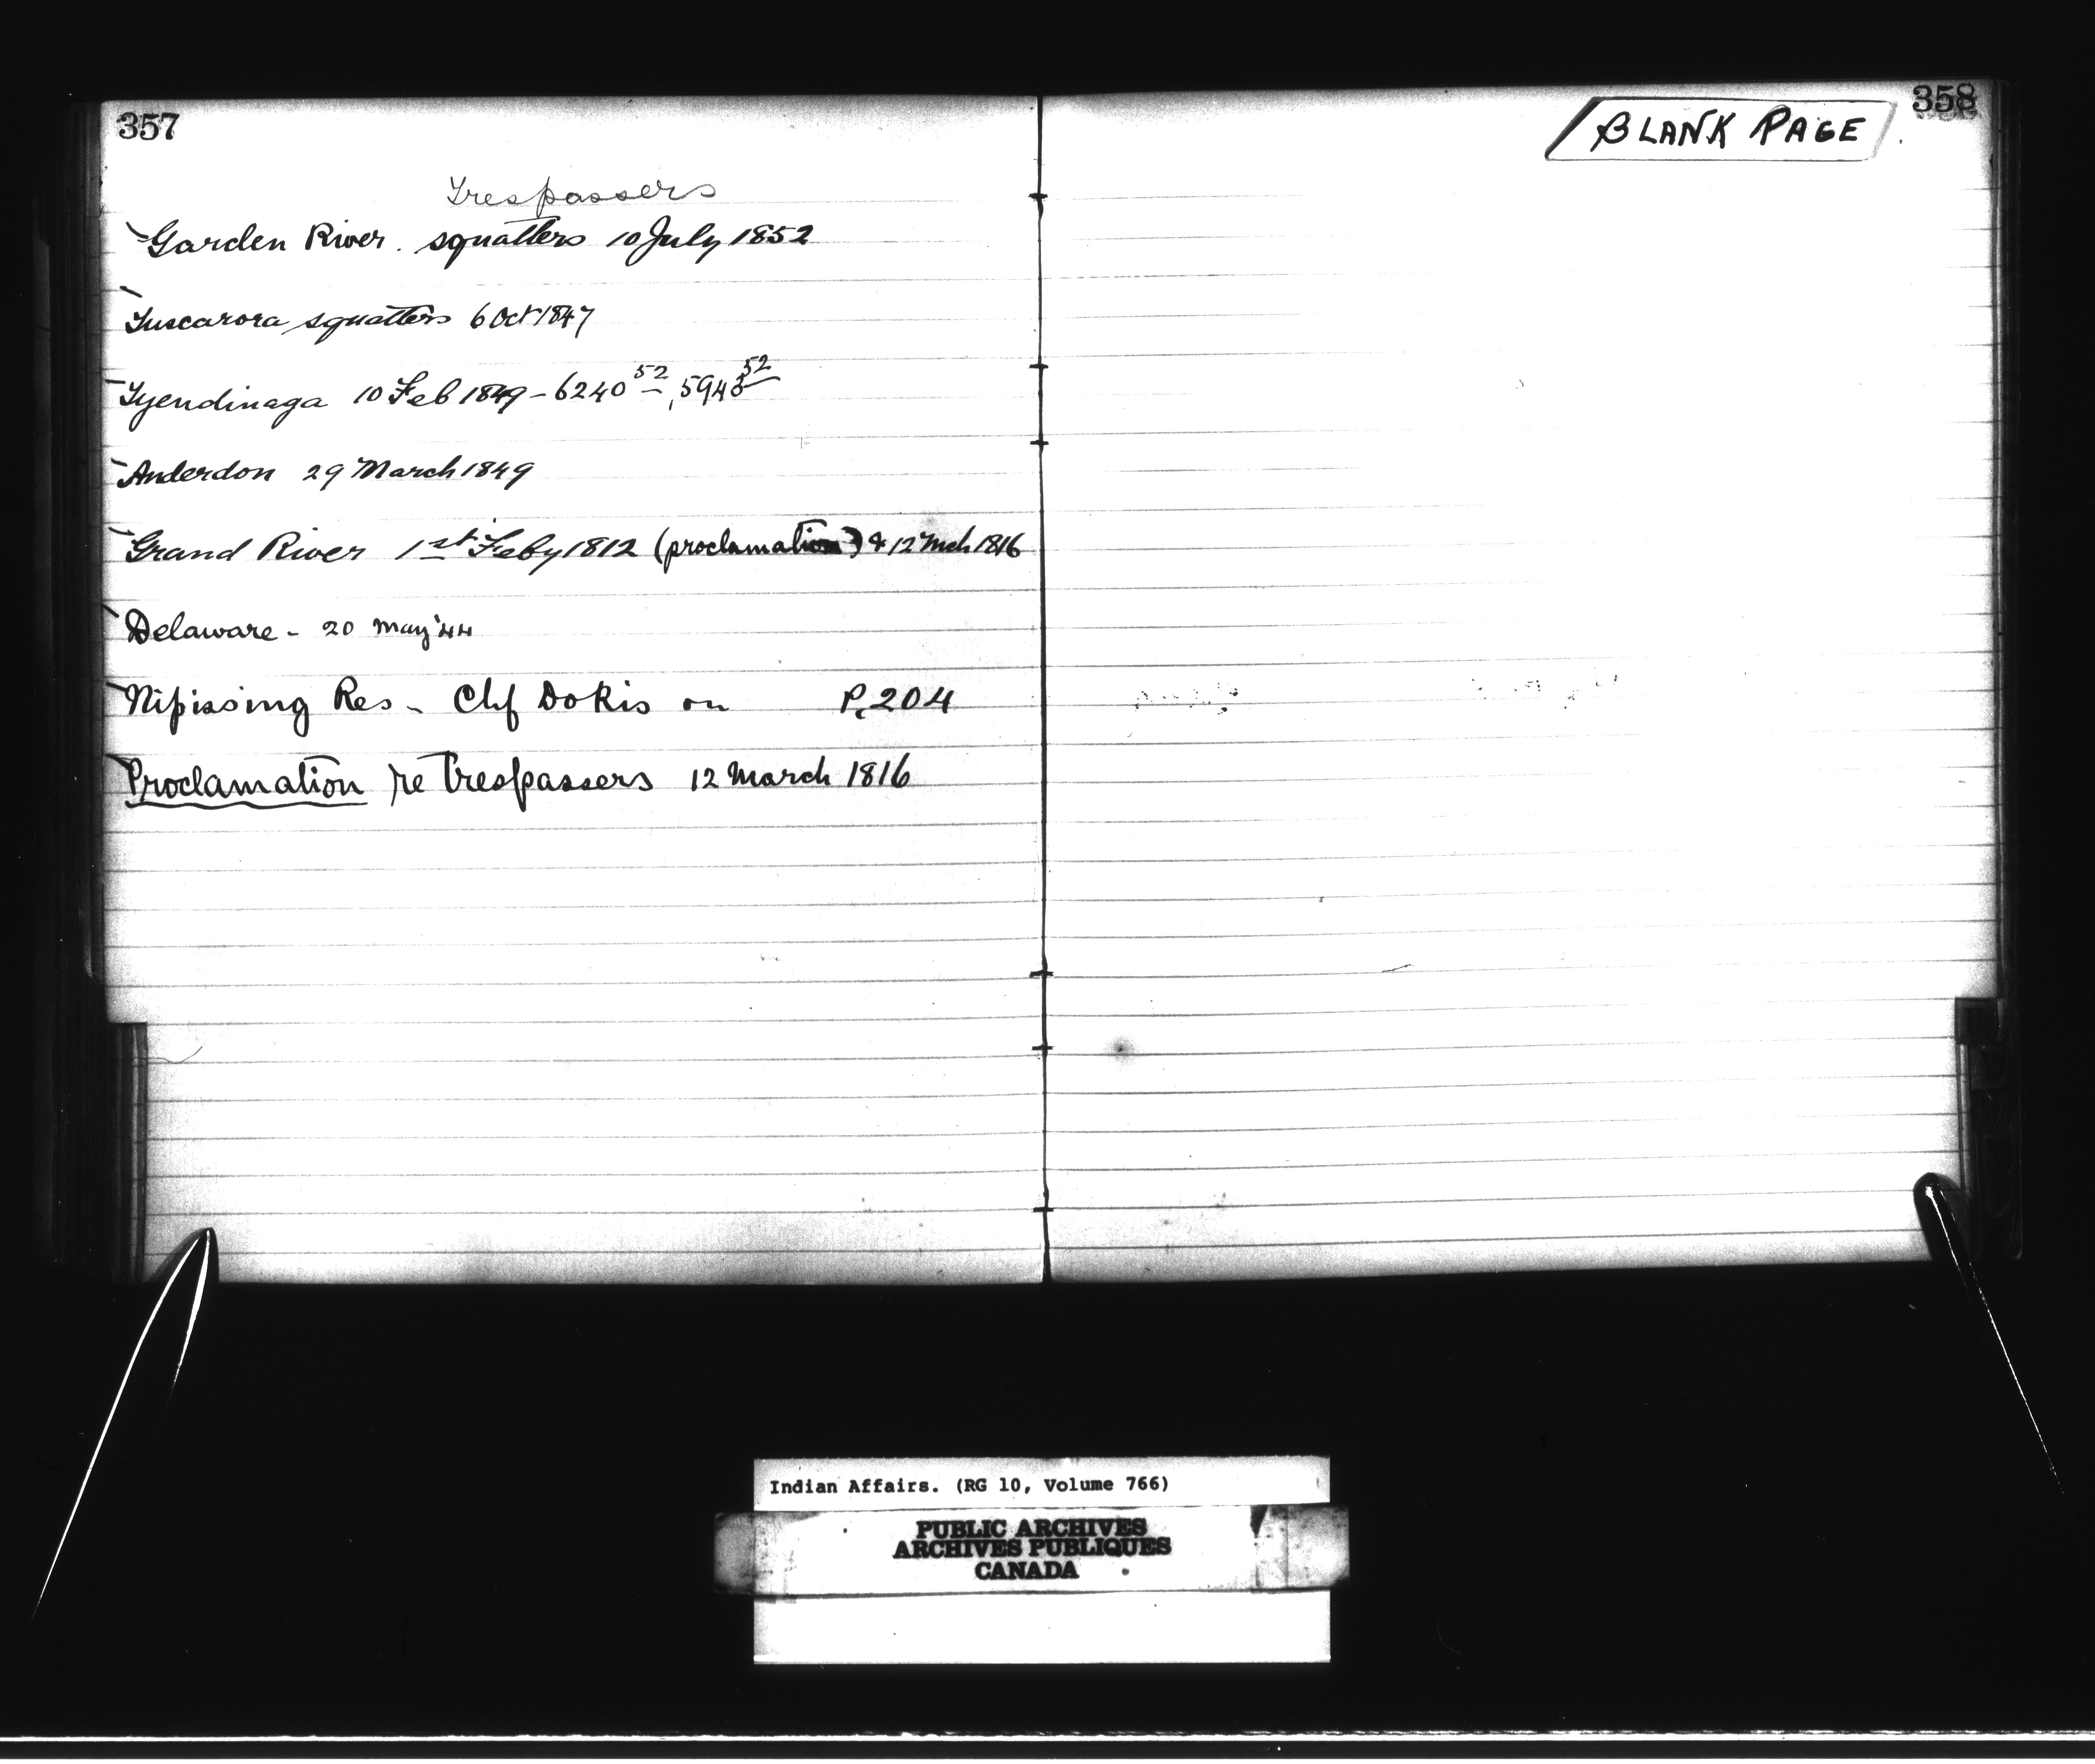 357
Trespassers
Garden River. squatters 10 July 1852
Tuscarora squatters 6 Oct 1847
Tyendinaga 10 Feb 1849 – 6240 52, 5943 52
Anderdon 29 March 1849
Grand River 1st Feby 1812 (proclamation) & 12 Mch 1816
Delaware - 20 May '44
Nipissing Res - Chf Dokis on P. 204
Proclamation re Trespassers 12 March 1816
358
BLANK PAGE
Indian Affairs. (RG 10, Volume 766)
PUBLIC ARCHIVES
ARCHIVES PUBLIQUES
CANADA